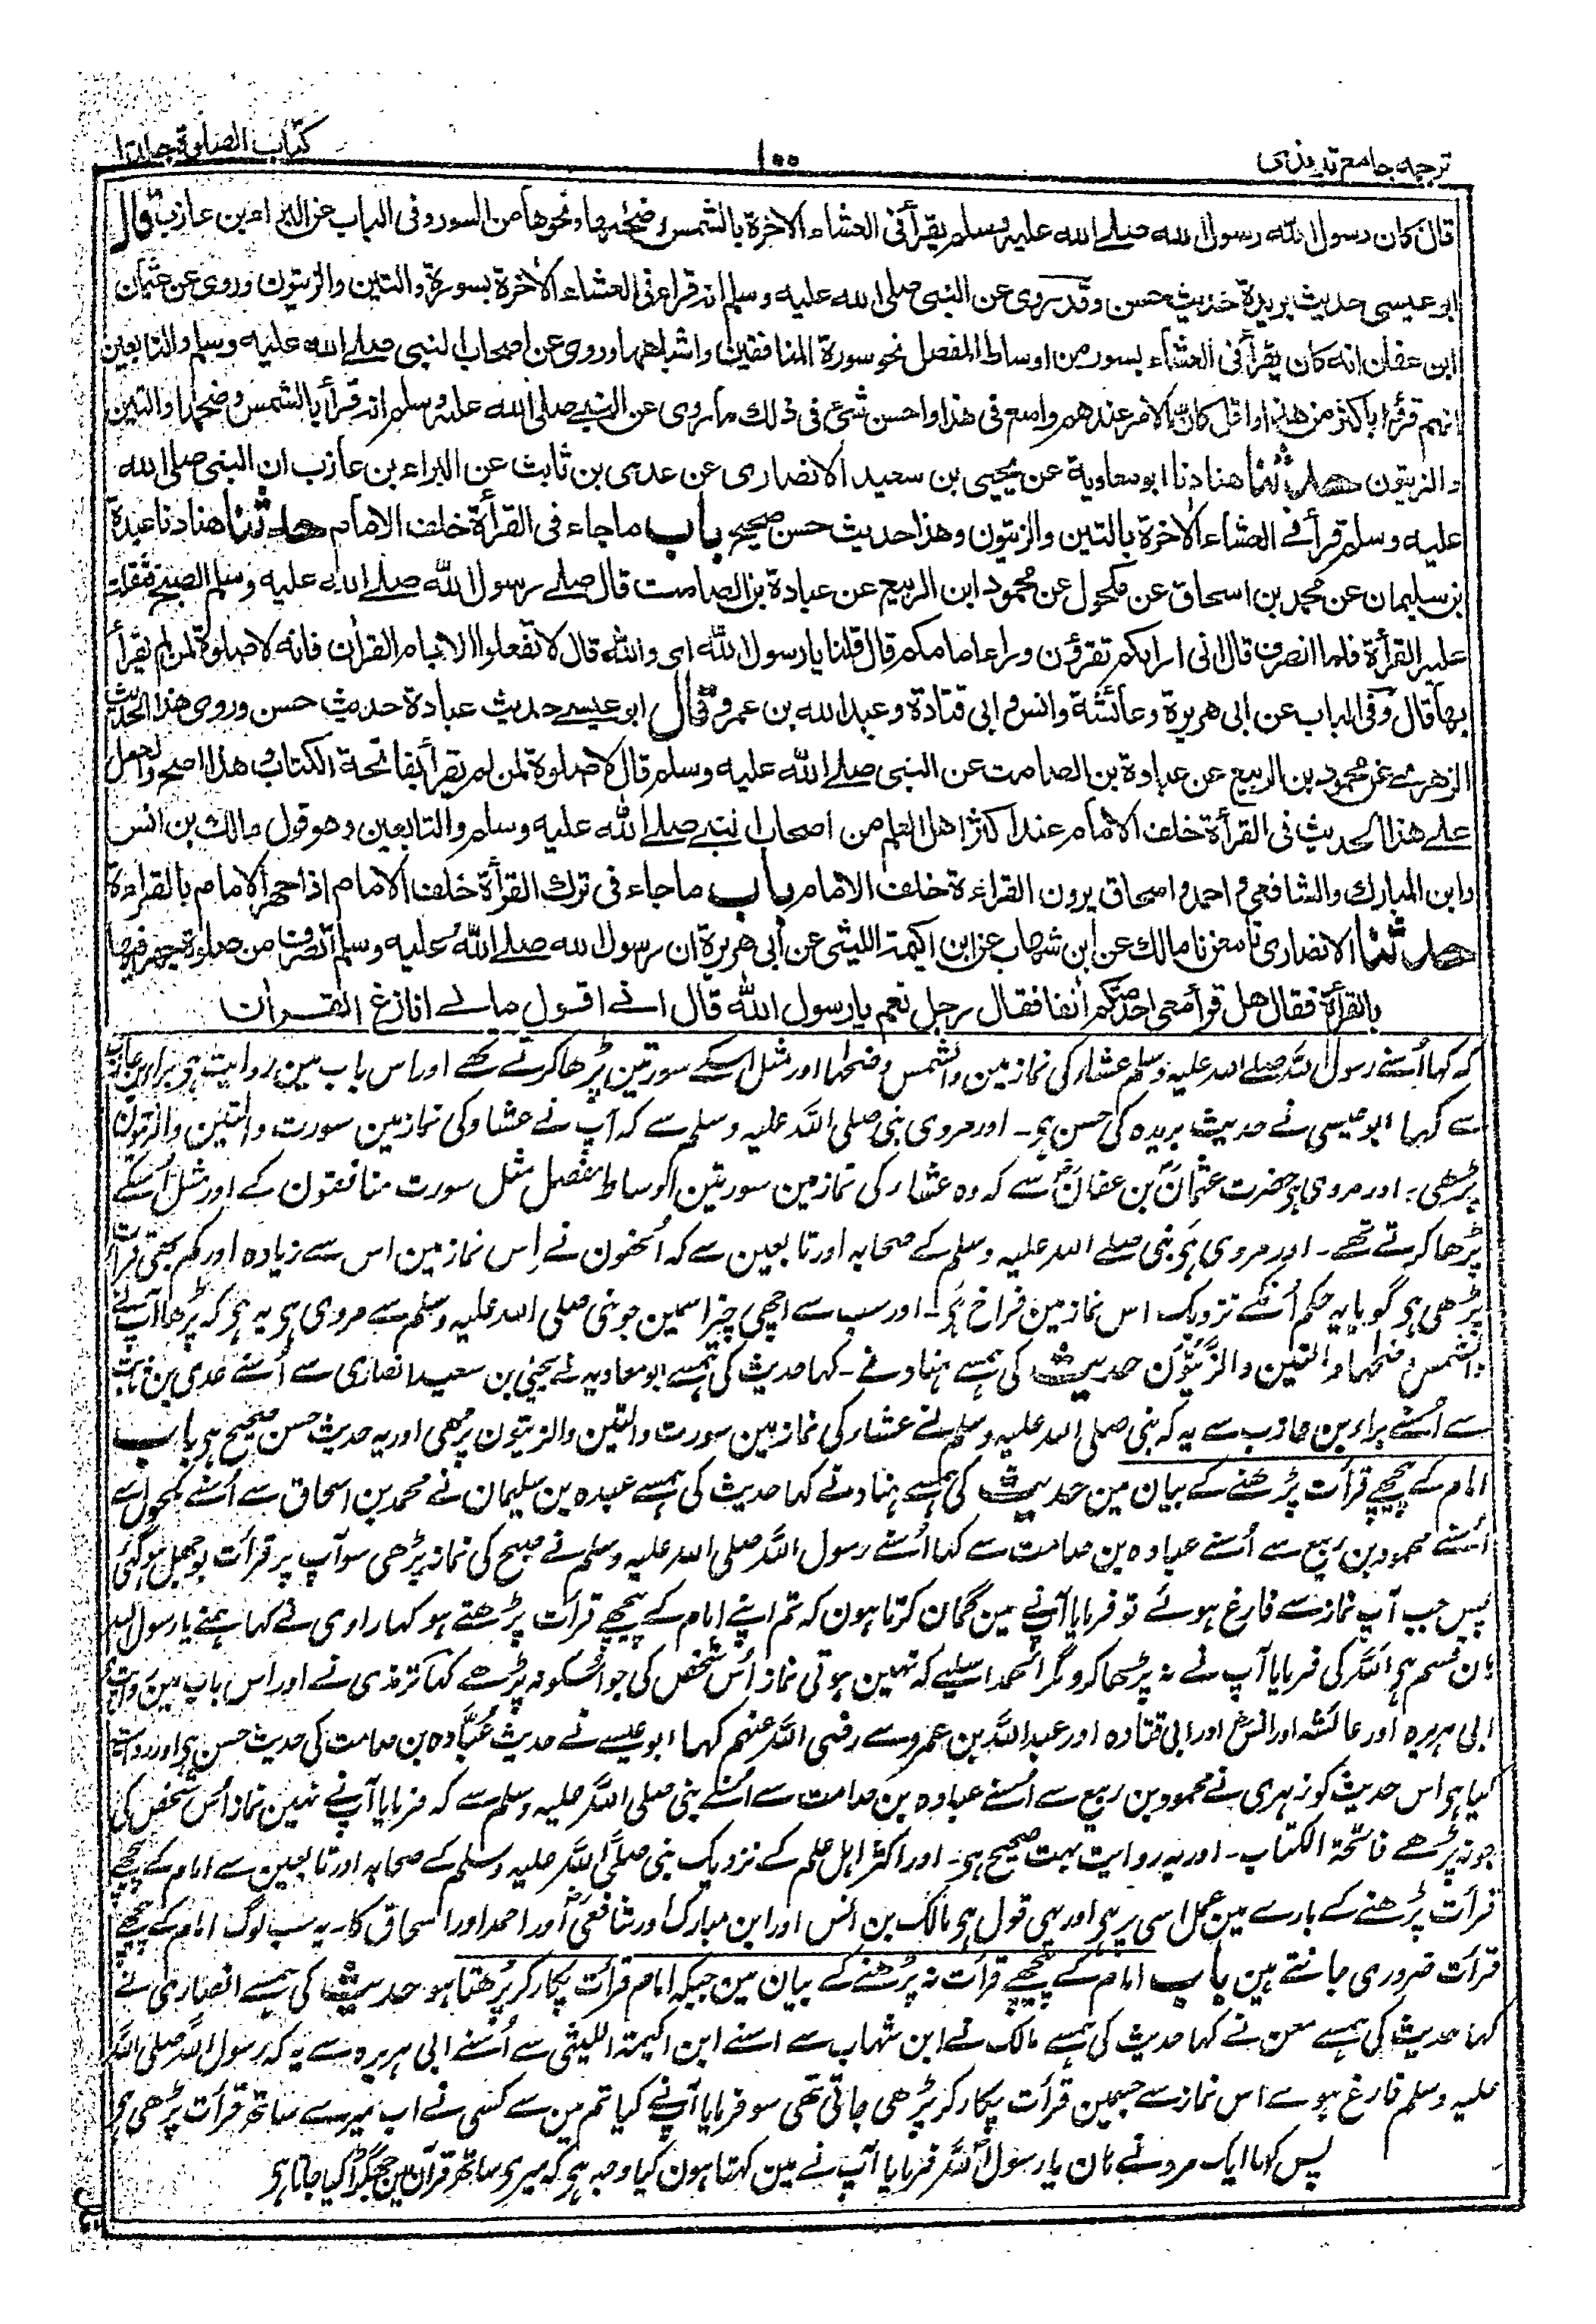 ترجمہ جامع ترمذی
۱۰۰
کتاب الصلوٰۃ جلد ۱
قال کان رسول الله رسول الله صلے الله علیہ وسلم یقرأ فی العشاء الاٰخرۃ بالشمس وضحٰھا ونحوھا من السور وفی الباب عن البراء بن عازب قال
ابو عیسی حدیث بریدۃ حدیث حسن وقد روی عن النبی صلی الله علیه وسلم انه قرأ فی العشاء الاٰخرۃ بسورۃ والتین والزیتون وروی عن عثمان
ابن عفان انه کان یقرأ فی العشاء بسور من اوساط المفصل نحو سورۃ المنافقین واشباھھا وروی عن اصحاب النبی صلے الله علیه وسلم والتابعین
انهم قرؤا باکثر من هذا واقل کان الامر عندهم واسع فی هذا واحسن شئ فی ذلك ما روی عن النبی صلی الله علیه وسلم انه قرأ بالشمس وضحٰها والتین
والزیتون حدثنا هناد نا ابو معاویة عن یحیی بن سعید الانصاری عن عدی بن ثابت عن البراء بن عازب ان النبی صلی الله
علیه وسلم قرأ فی العشاء الاٰخرۃ بالتین والزیتون وهذا حدیث حسن صحیح باب ما جاء فی القرأۃ خلف الامام حدثنا هناد نا عبدۃ
بن سلیمان عن محمد بن اسحاق عن مکحول عن محمود ابن الربیع عن عبادۃ بن الصامت قال صلے رسول الله صلے الله علیه وسلم الصبح فثقلت
علیه القرأۃ فلما انصرف قال انی اراکم تقرؤن وراء امامکم قال قلنا یا رسول الله ای والله قال لا تفعلوا الا بام القراٰن فانه لا صلوٰۃ لمن لم یقرأ
بها قال وفی الباب عن ابی هریرۃ وعائشة وانس وابی قتادۃ وعبد الله بن عمرو قال ابو عیسے حدیث عبادۃ حدیث حسن وروی هذا الحدیث
الزهری عن محمود بن الربیع عن عبادۃ بن الصامت عن النبی صلے الله علیه وسلم قال لا صلوۃ لمن لم یقرأ بفاتحة الکتاب وهذا اصح والعمل
علے هذا الحدیث فی القرأۃ خلف الامام عند اکثر اهل العلم من اصحاب النبی صلے الله علیه وسلم والتابعین وهو قول مالك بن انس
وابن المبارك والشافعی واحمد واسحاق یرون القراءۃ خلف الامام باب ما جاء فی ترك القرأۃ خلف الامام اذا جهر الامام بالقراءۃ
حدثنا الانصاری نا معن نا مالك عن ابن شهاب عن ابن اکیمة اللیثی عن ابی هریرۃ ان رسول الله صلے الله علیه وسلم انصرف من صلوۃ جهر فیها
بالقرأۃ فقال هل قرأ معی احد منکم اٰنفا فقال رجل نعم یا رسول الله قال انے اقول مالے انازع القراٰن
کہ کہا اُسنے رسول اللہ صلے اللہ علیہ وسلم عشاء کی نماز مین والشمس وضحٰہا اور مثل اسکے سورتین پڑھا کرتے تھے اور اس باب مین روایت ہی براء بن عازب
سے کہا ابو عیسی نے حدیث بریدہ کی حسن ہی۔ اور مروی نبی صلی اللہ علیہ وسلم سے کہ آپ نے عشاء کی نماز مین سورت والتین والزیتون
پڑھی۔ اور مروی ہی حضرت عثمان بن عفان سے کہ وہ عشاء کی نماز مین سورتین اوساط مفصل مثل سورت منافقون کے اور مثل اُسکے
پڑھا کرتے تھے۔ اور مروی ہی نبی صلے اللہ علیہ وسلم کے صحابہ اور تابعین سے کہ اُنھون نے اِس نماز مین اس سے زیادہ اور کم بھی قرأت
پڑھی ہی گویا یہ حکم اُنکے نزدیک اس نماز مین فراخ ہی۔ اور سب سے اچھی چیز اسمین جو نبی صلی اللہ علیہ وسلم سے مروی ہی یہ ہی کہ پڑھا آپ نے
والشمس وضحٰہا والتین والزیتون حدیث کی ہمسے ہناد نے۔ کہا حدیث کی ہمسے ابو معاویہ نے یحیی بن سعید انصاری سے اُسنے عدی بن ثابت
سے اُسنے براء بن عازب سے یہ کہ نبی صلی اللہ علیہ وسلم نے عشاء کی نماز مین سورت والتین والزیتون پڑھی اور یہ حدیث حسن صحیح ہی باب
امام کے پیچھے قرأت پڑھنے کے بیان مین حدیث کی ہمسے ہناد نے کہا حدیث کی ہمسے عبدہ بن سلیمان نے محمد بن اسحاق سے اُسنے مکحول سے
اُسنے محمود بن ربیع سے اُسنے عبادہ بن صامت سے کہا اُسنے رسول اللہ صلی اللہ علیہ وسلم نے صبح کی نماز پڑھی سو آپ پر قرأت بوجھل ہوگئی
پس جب آپ نماز سے فارغ ہوئے تو فرمایا آپنے مین گمان کرتا ہون کہ تم اپنے امام کے پیچھے قرأت پڑھتے ہو کہا راوی نے کہا ہمنے یا رسول اللہ
ہان قسم ہی اللہ کی فرمایا آپ نے نہ پڑھا کرو مگر الحمد اسلیے کہ نہین ہوتی نماز اُس شخص کی جو اُسکو نہ پڑھے کہا ترمذی نے اور اس باب مین روایت ہی
ابی ہریرہ اور عائشہ اور انس اور ابی قتادہ اور عبد اللہ بن عمرو سے رضی اللہ عنہم کہا ابو عیسے نے حدیث عُبادہ بن صامت کی حدیث حسن ہی اور روایت
کیا ہی اس حدیث کو زہری نے محمود بن ربیع سے اُسنے عبادہ بن صامت سے اُسنے نبی صلی اللہ علیہ وسلم سے کہ فرمایا آپنے نہین نماز اُس شخص کی
جو نہ پڑھے فاتحۃ الکتاب۔ اور یہ روایت بہت صحیح ہی۔ اور اکثر اہل علم کے نزدیک نبی صلی اللہ علیہ وسلم کے صحابہ اور تابعین سے امام کے پیچھے
قرأت پڑھنے کے بارے مین عمل اسی پر ہی اور یہی قول ہی مالک بن انس اور ابن مبارک اور شافعی اور احمد اور اسحاق کا۔ یہ سب لوگ امام کے پیچھے
قرأت ضروری جانتے ہین باب امام کے پیچھے قرأت نہ پڑھنے کے بیان مین جبکہ امام قرأت پکار کر پڑھتا ہو حدیث کی ہمسے انصاری نے
کہا حدیث کی ہمسے معن نے کہا حدیث کی ہمسے مالک نے ابن شہاب سے اسنے ابن اکیمۃ اللیثی سے اُسنے ابی ہریرہ سے یہ کہ رسول اللہ صلی اللہ
علیہ وسلم فارغ ہوے اس نماز سے جسمین قرأت پکار کر پڑھی جاتی تھی سو فرمایا آپنے کیا تم مین سے کسی نے اب میرے ساتھ قرأت پڑھی ہی
پس کہا ایک مرد نے ہان یا رسول اللہ فرمایا آپ نے مین کہتا ہون کیا وجہ ہی کہ میرے ساتھ قرآن مین جھگڑا کیا جاتا ہی